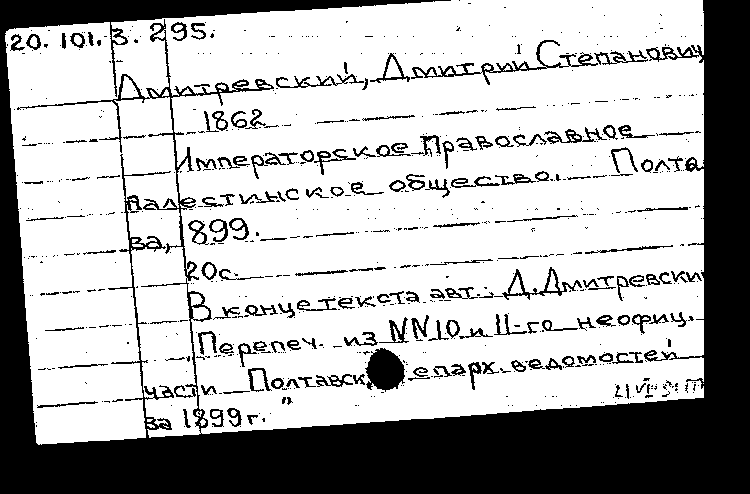 20. 101. 3. 295.
Дмитревский, Дмитрий Степанович
1862
Императорское Православное
Палестинское общество. Полта
ва, 1899.
20с.
В конце текста авт.: Д. Дмитревски
Перепеч. из NN10 и 11-го неофиц.
части Полтавск. епарх. ведомостей
за 1899г."